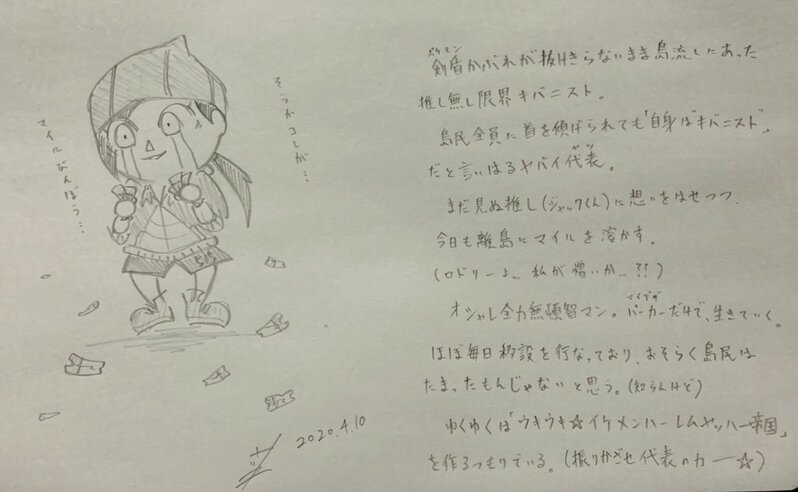 そうかコレが…
マイルびんぼう…
2020.4.10
ポケモン
剣盾かぶれが抜けきらないまま島流しにあった
推し無し限界キバニスト。
島民全員に首を傾げられても「自身はキバニスト」
だと言いはるヤバイ代表。
まだ見ぬ推し(ジャックくん)に想いをはせつつ、
今日も離島にマイルを溶かす。
(ロドリーよ…私が憎いか…??)
マイデザ
オシャレ全力無頓智マン。パーカーだけで、生きていく。
ほぼ毎日移設を行なっており、おそらく島民は
たまったもんじゃないと思う。(知らんけど)
ゆくゆくは「ウキウキ☆イケメンハーレムヤッハー帝国」
を作るつもりでいる。(振りかざせ代表の力ー☆)